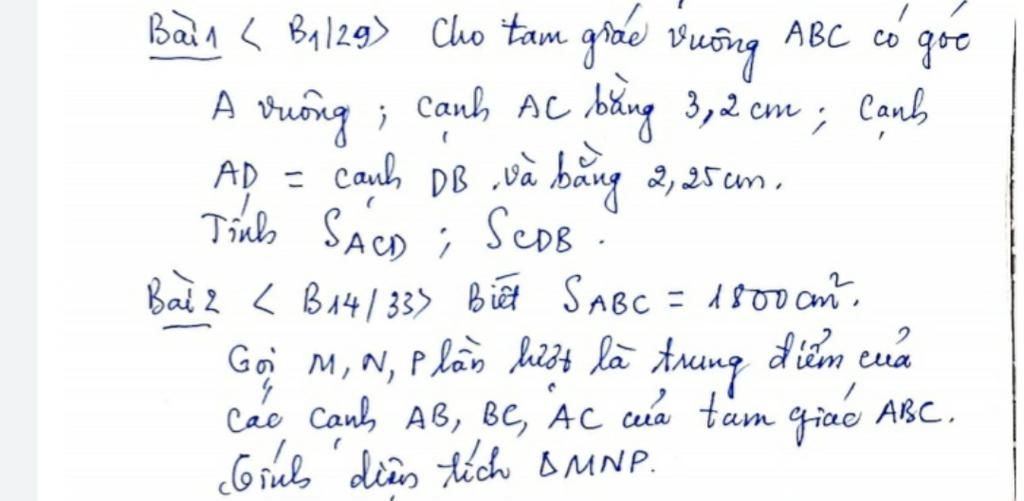 Bài 1 < B1/29> Cho tam giác vuông ABC có góc
A vuông ; cạnh AC bằng 3,2 cm ; cạnh
AD = cạnh DB và bằng 2,25 cm.
Tính SACD ; SCDB .
Bài 2 < B14/33> Biết SABC = 1800 cm².
Gọi M, N, P lần lượt là trung điểm của
các cạnh AB, BC, AC của tam giác ABC.
Tính diện tích ΔMNP.